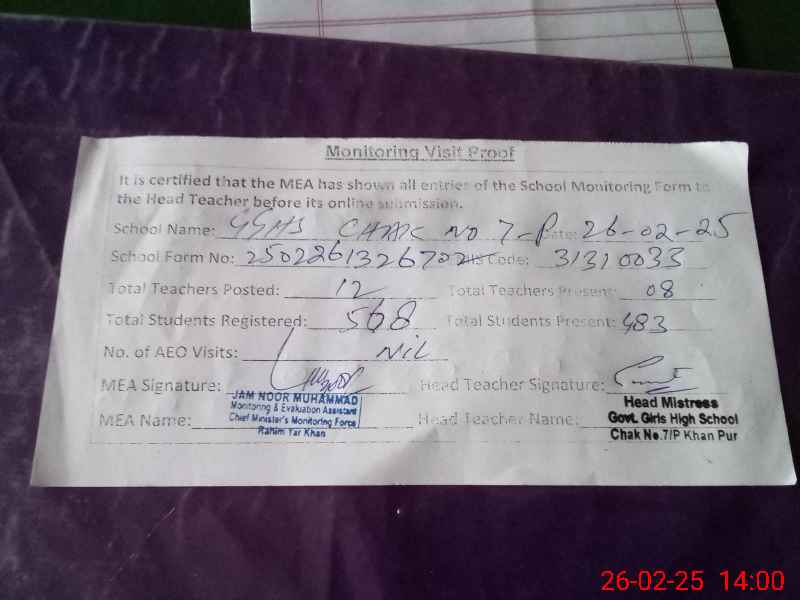 Monitoring Visit Proof
It is certified that the MEA has shown all entries of the School Monitoring Form to
the Head Teacher before its online submission.
School Name: GGHS CHAK NO 7-P Date: 26-02-25
School Form No: 2502261326702 Code: 31310033
Total Teachers Posted: 12 Total Teachers Present: 08
Total Students Registered: 568 Total Students Present: 483
No. of AEO Visits: NIL
MEA Signature: Head Teacher Signature:
MEA Name: Head Teacher Name:
JAM NOOR MUHAMMAD
Monitoring & Evaluation Assistant
Chief Minister's Monitoring Force
Rahim Yar Khan
Head Mistress
Govt. Girls High School
Chak No.7/P Khan Pur
26-02-25 14:00